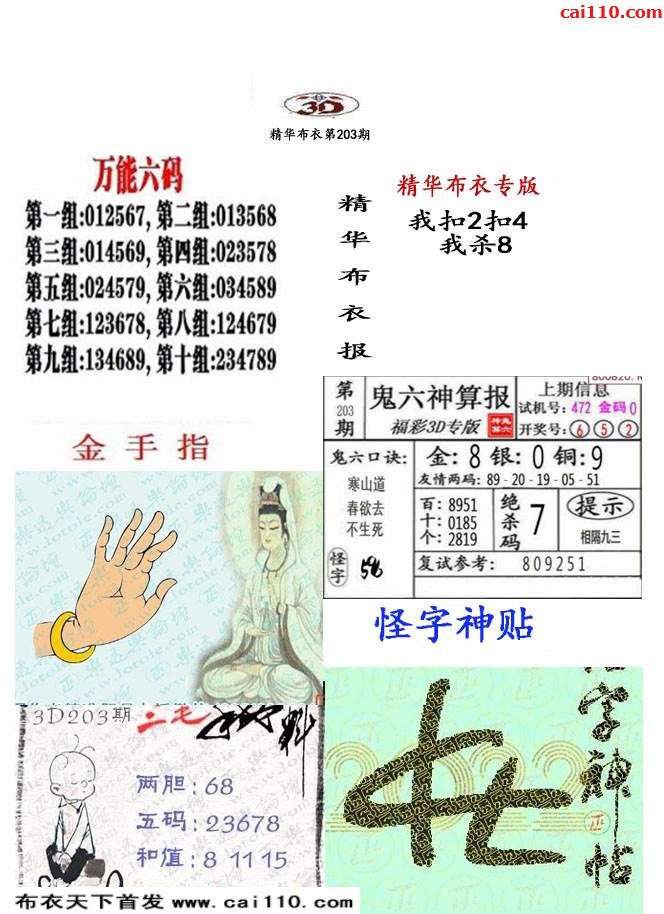 cai110.com
3D
精华布衣第203期
万能六码
第一组:012567, 第二组:013568
第三组:014569, 第四组:023578
第五组:024579, 第六组:034589
第七组:123678, 第八组:124679
第九组:134689, 第十组:234789
精华布衣报
精华布衣专版
我扣2扣4
我杀8
第203期
鬼六神算报
福彩3D专版
上期信息
试机号: 472 金码0
开奖号: 6 5 2
鬼六口诀:
寒山道
春欲去
不生死
怪字
金: 8 银: 0 铜: 9
友情两码: 89-20-19-05-51
百: 8951
十: 0185
个: 2819
绝杀码
7
提示
相隔九三
复试参考: 809251
金手指
怪字神贴
3D203期
两胆: 68
五码: 23678
和值: 8 11 15
字神帖
布衣天下首发 www.cai110.com